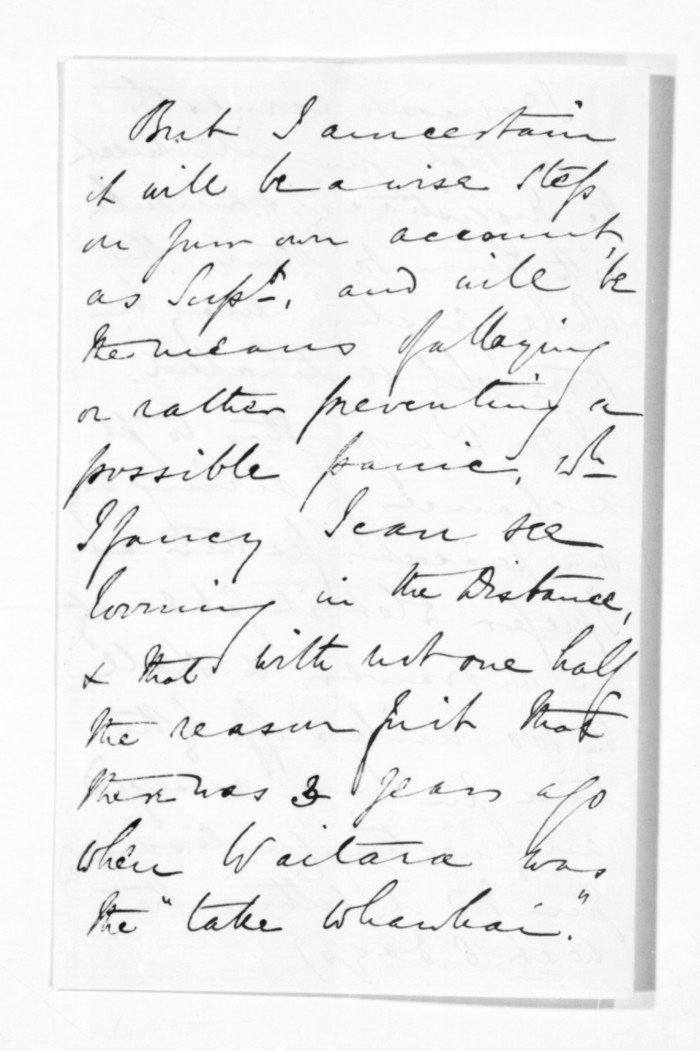 But I am certain
it will be a wise step
on your own account,
as Supt. and will be
the means of allaying
or rather preventing a
possible panic, wh
I fancy I can see
looming in the Distance,
& that with not one half
the reason for it that
there was 3 years ago
when Waitara was
the "take whawhai."